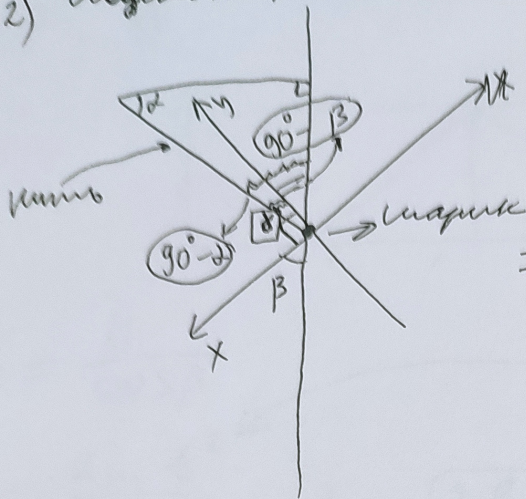 2)
α
y
90° - β
нить
α
шарик
90° - α
β
x